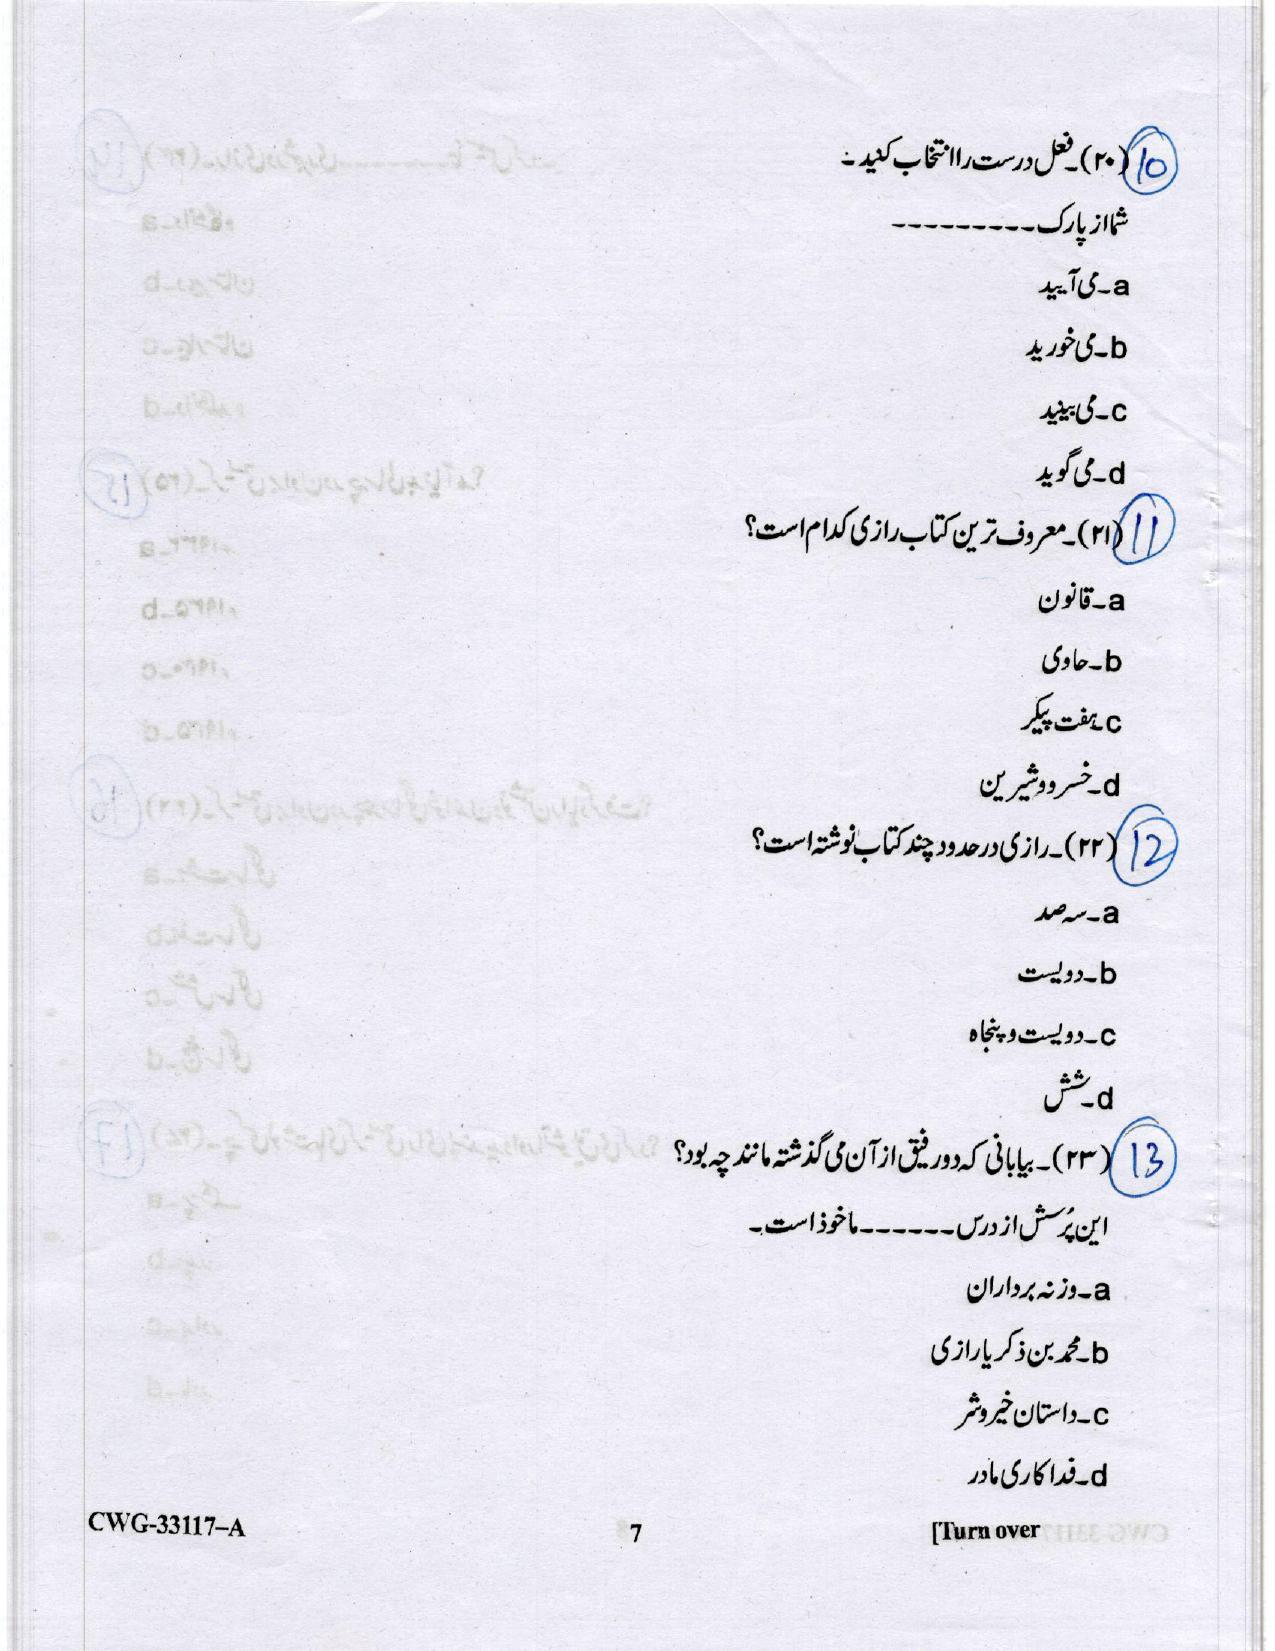 10 (۲۰)۔فعل درست را انتخاب کنید۔
شما از پارک ---------
a۔می آیید
b۔می خورید
c۔می بینید
d۔می گوید
11 (۲۱)۔معروف ترین کتاب رازی کدام است؟
a۔قانون
b۔حاوی
c۔ہفت پیکر
d۔خسرو و شیرین
12 (۲۲)۔رازی در حدود چند کتاب نوشتہ است؟
a۔سہ صد
b۔دویست
c۔دویست و پنجاہ
d۔شش
13 (۲۳)۔بیابانی کہ دو رفیق از آن می گذشتہ مانند چہ بود؟
این پُرسش از درس ------ ماخوذ است۔
a۔وزنہ برداران
b۔محمد بن ذکریا رازی
c۔داستان خیر و شر
d۔فداکاری مادر
CWG-33117–A 7 [Turn over